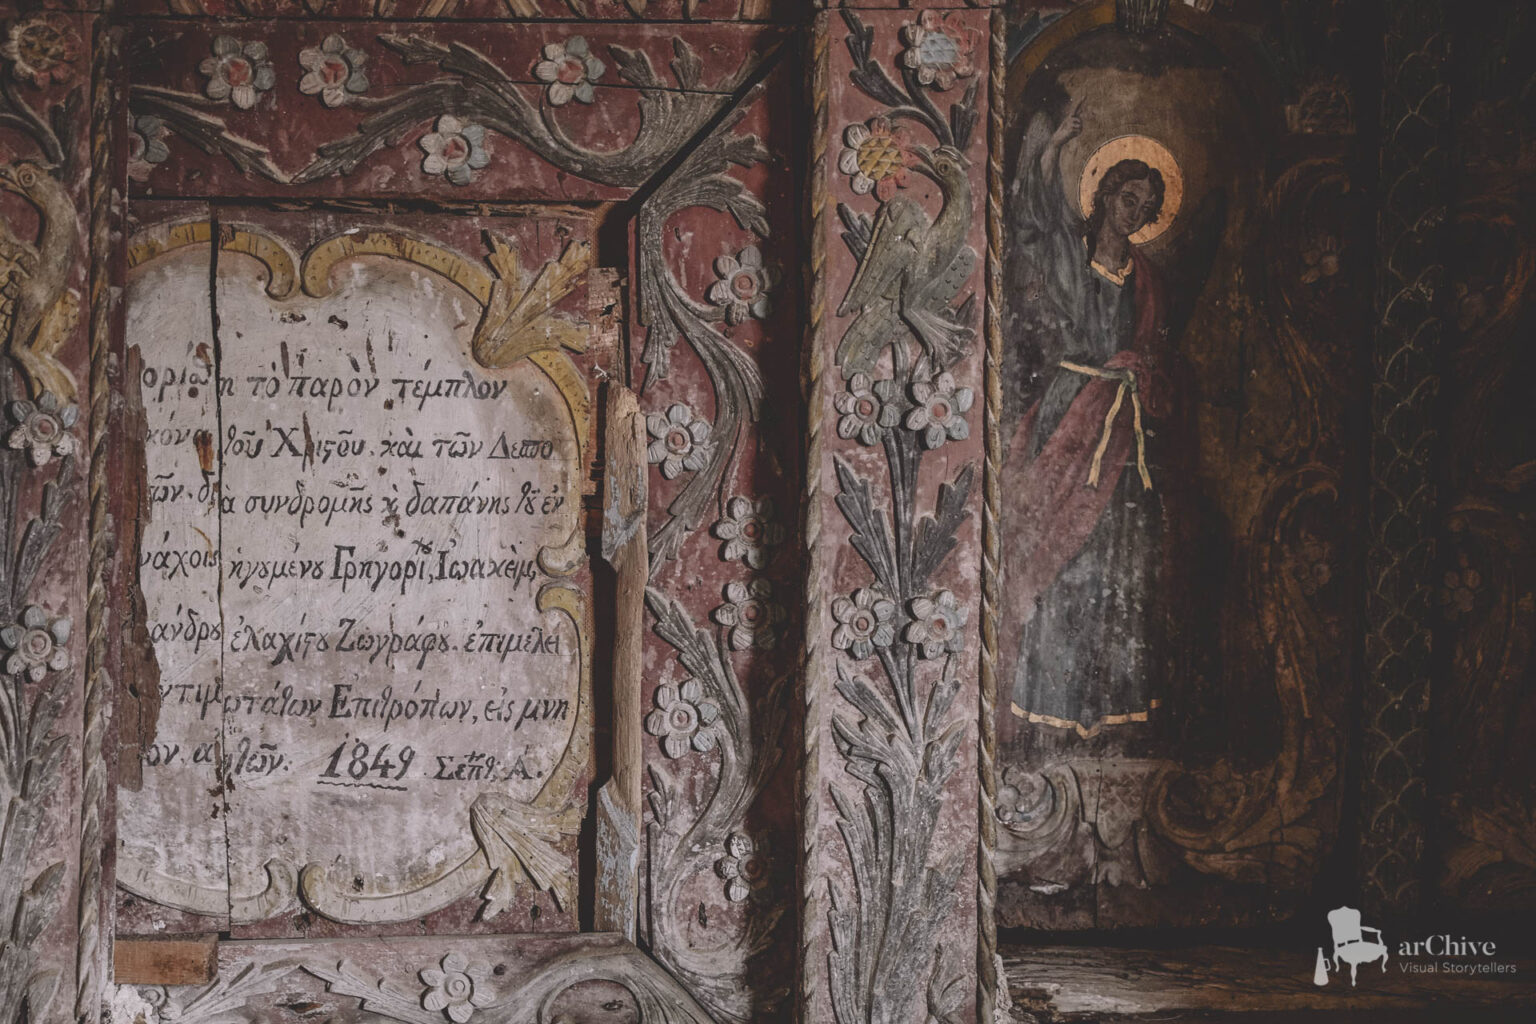 τὸ παρὸν τέμπλον
τοῦ Χριϛοῦ. καὶ τῶν Δεσπο
τῶν. διὰ συνδρομῆς ϗ δαπάνης τȣ̃ ἐν
νάχοις ἡγȣμένȣ Γρηγορίȣ, Ἰωακεὶμ,
άνδρȣ ἐλαχίϛȣ Ζωγράφȣ. ἐπιμελεί
ντιμωτάτων Ἐπιτρόπων, εἰς μνη
ον. αὐτῶν. 1849. Σεπτ: Α.
arChive
Visual Storytellers